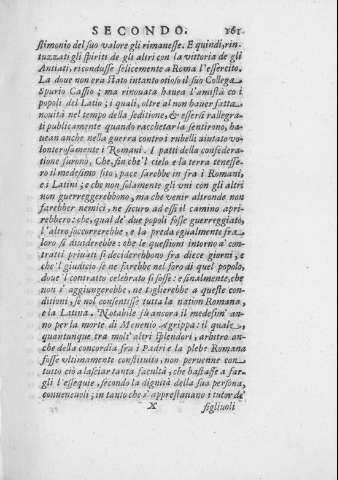 SECONDO. 161
stimonio del suo valore gli rimanesse. E quindi, rin-
tuzzati gli spiriti de gli altri con la vittoria de gli
Antiati, ricondusse felicemente a Roma l'essercito.
La doue non era stato intanto otioso il suo Collega
Spurio Cassio; ma rinouata haueua l'amistà co i
popoli del Latio; i quali, oltre al non hauer fatta
nouità nel tempo della seditione, & essersi rallegra-
ti publicamente quando racchetar la sentirono, ha-
ueuan anche nella guerra contro i rubelli aiutato vo-
lonterosamente i Romani. I patti della confidera-
tione furono, Che, fin che'l cielo e la terra tenesse-
ro il medesimo sito, pace sarebbe in fra i Romani,
e i Latini; e che non solamente gli vni con gli altri
non guerreggerebbono, ma che venir altronde non
farebber nemici, ne sicuro ad essi il camino apri-
rebbero: che, qual de' due popoli fosse guerreggiato,
l'altro soccorrerebbe, e la preda egualmente fra
loro si diuiderebbe: che le questioni intorno a' con-
tratti priuati si deciderebbono fra diece giorni, e
che'l giudicio se ne farebbe nel foro di quel popolo,
doue'l contratto celebrato si fosse: e finalmente, che
non s'aggiungerebbe, ne toglierebbe a queste con-
ditioni, se nol consentisse tutta la nation Romana,
e la Latina. Notabile fù ancora il medesim' an-
no per la morte di Menenio Agrippa: il quale,
quantunque tra molt'altri splendori, arbitro an-
che della concordia fra i Padri e la plebe Romana
fosse vltimamente constituito, non peruenne con
tutto ciò a lasciar tanta facultà, che bastasse a far-
gli l'essequie, secondo la dignità della sua persona,
conueneuoli; in tanto che s'apprestauano i tutor de'
X figliuoli